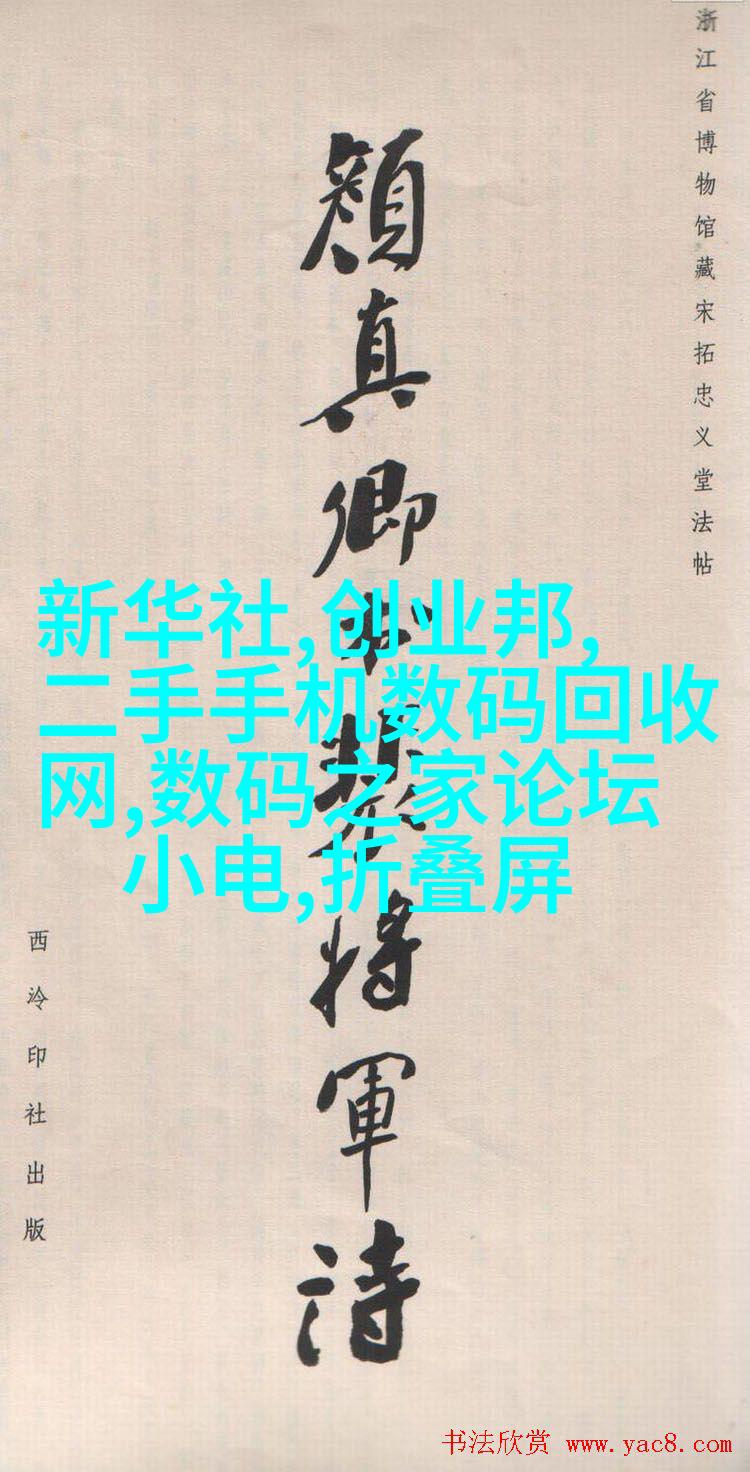 浙江省博物馆藏宋拓忠义堂法帖
颜真卿书裴将军诗
西泠印社出版
新华社,创业邦,
二手手机数码回收
网,数码之家论坛
小电,折叠屏
书法欣赏 www.yac8.com